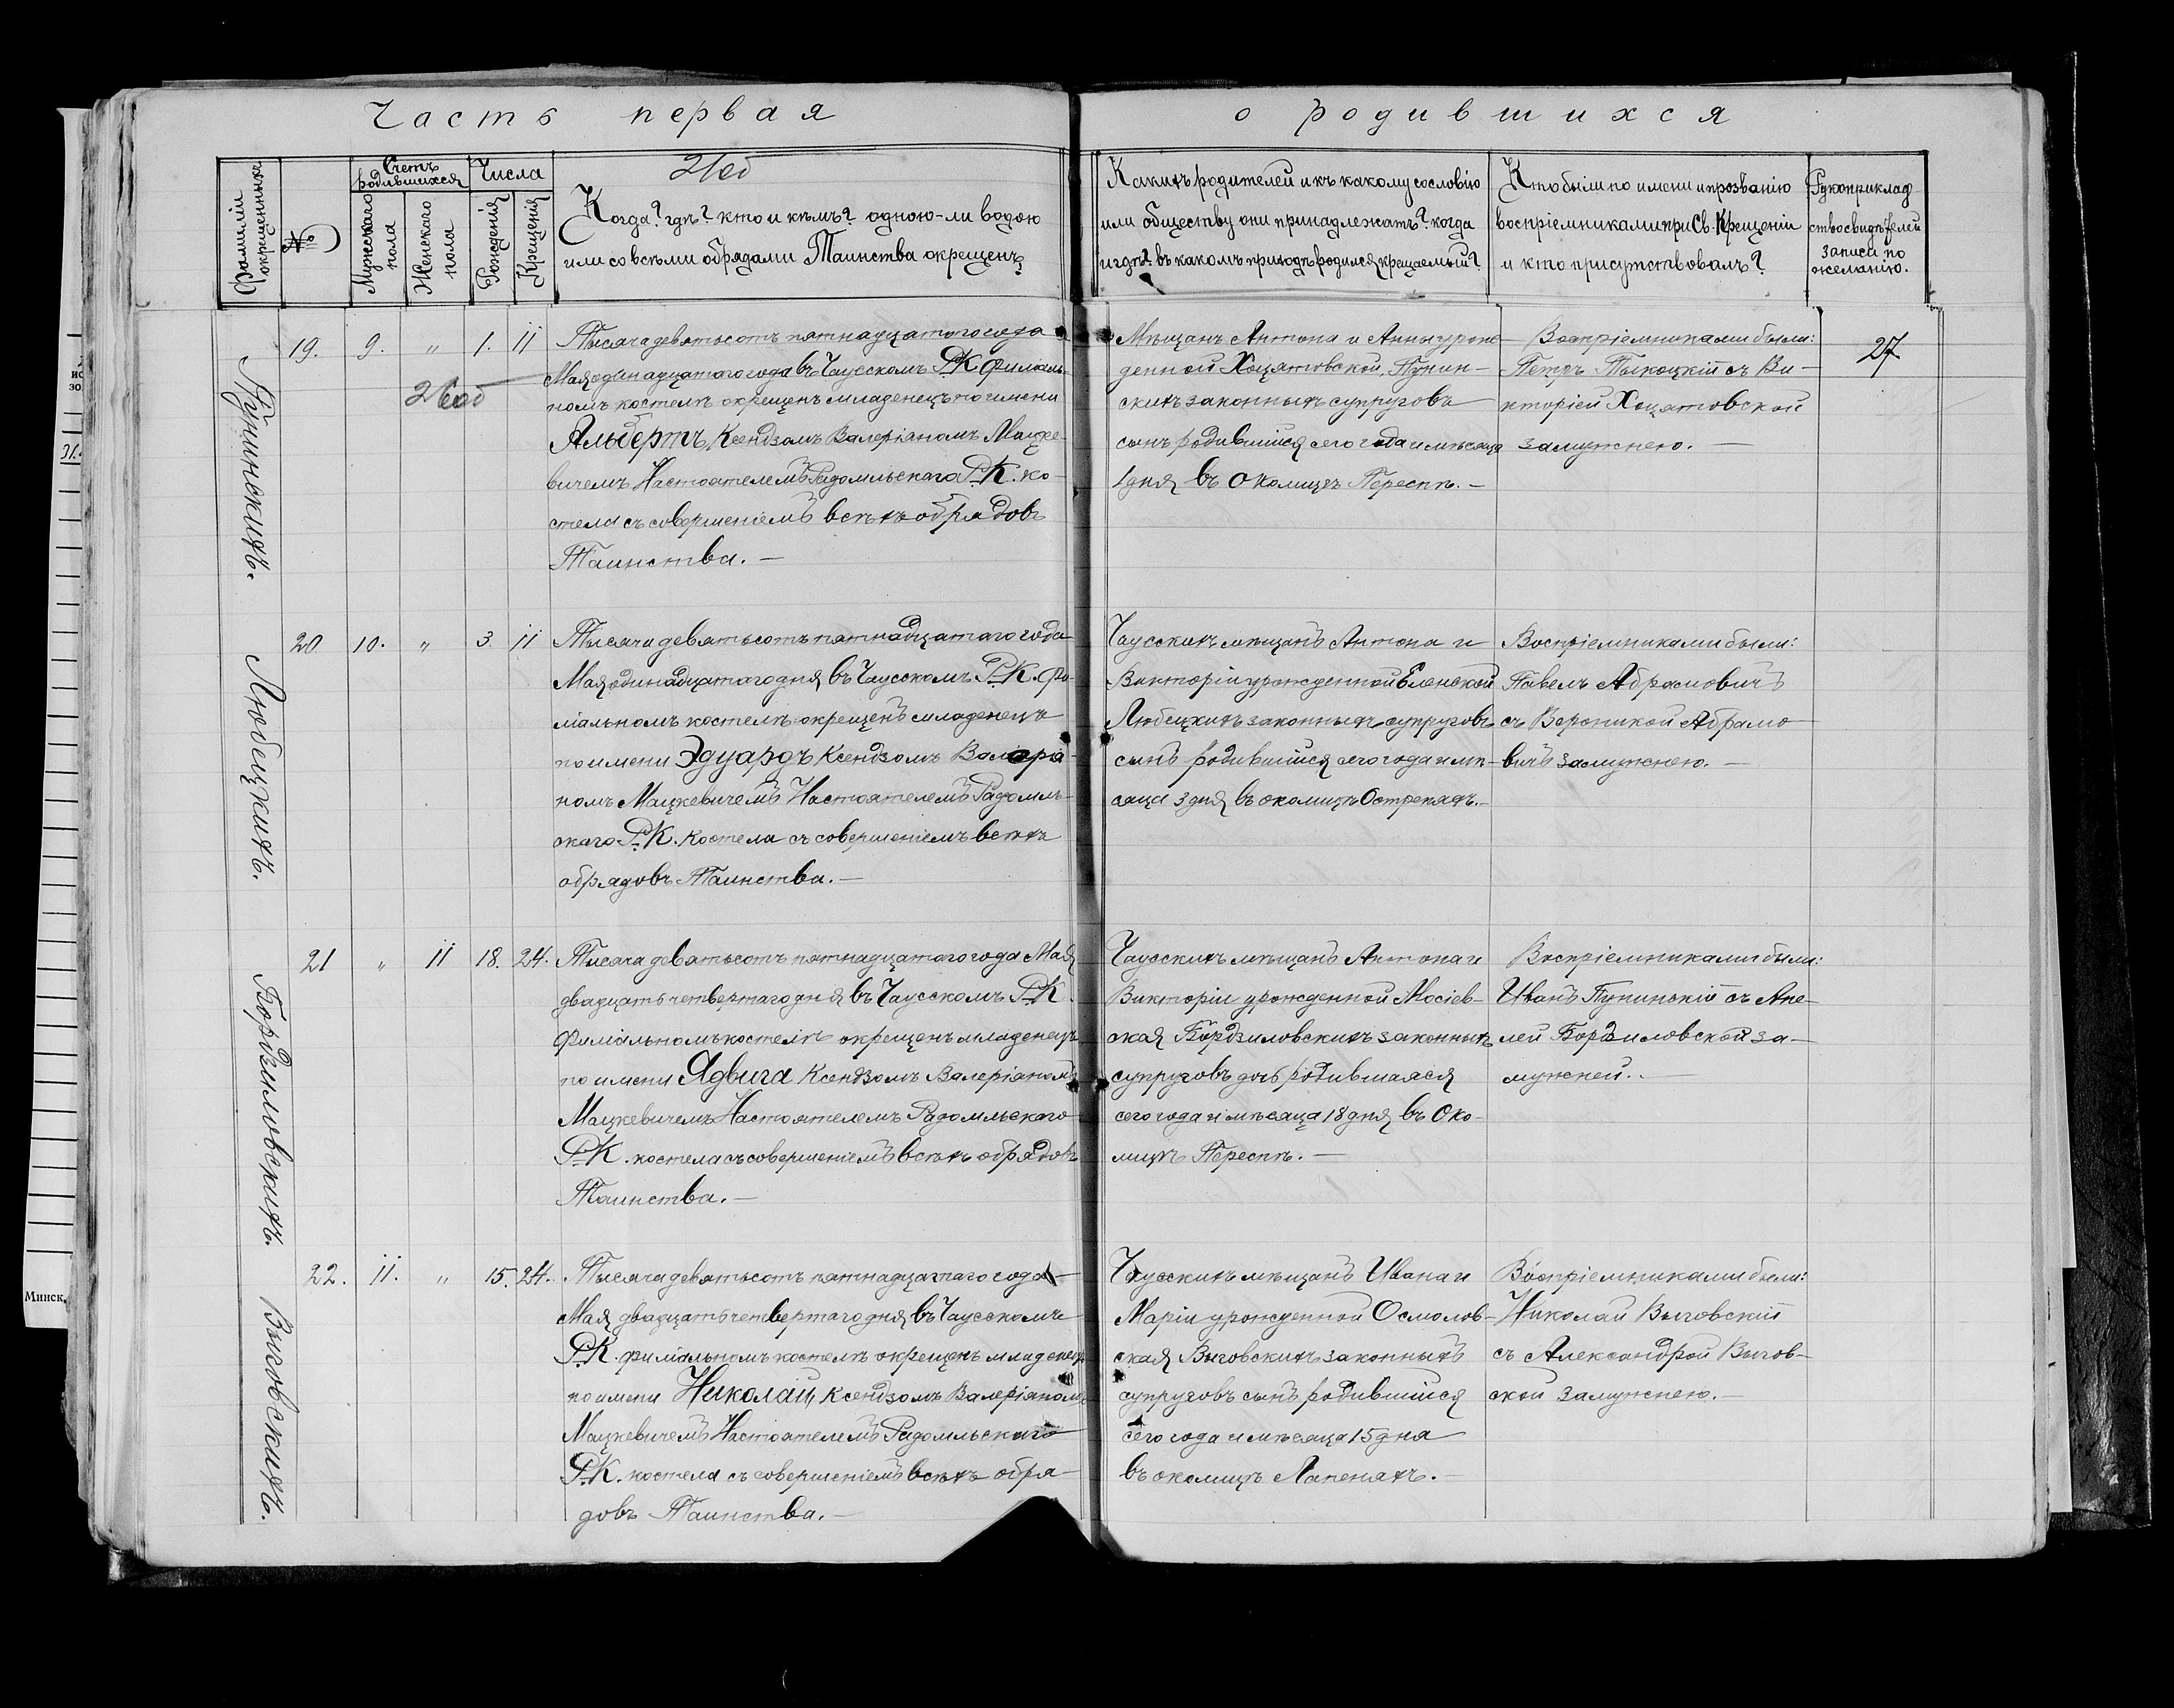 Часть первая о родившихся
Фамилія окрещеннаго
№
Счетъ родившихся
Мужескаго пола
Женскаго пола
Числа
Рожденія
Крещенія
26об
Когда? гдѣ? кто и кѣмъ? одною-ли водою
или со всѣми обрядами Таинства окрещенъ
Какихъ родителей и къ какому сословію
или обществу они принадлежатъ? когда
и гдѣ? въ какомъ приходѣ родился крещаемый?
Кто были по имени и прозванію
воспріемниками при Св. Крещеніи
и кто присутствовалъ?
Рукоприклад-
ство свидѣтелей
записи по
желанію.
Пунинскихъ.
19. 9. " 1. 11
26об
Тысяча девятьсотъ пятнадцатого года
Мая одинадцатого года въ Чаусскомъ Р.К филіаль-
номъ костелѣ окрещенъ младенецъ по имени
Альбертъ, Ксендзомъ Валеріаномъ Мацке-
вичемъ Настоятелемъ Радомльскаго Р.К. ко-
стела съ совершеніемъ всѣхъ обрядовъ
Таинства. —
Мѣщанъ Антона и Анны урож-
денной Хоцятовской, Пунин-
скихъ законныхъ супруговъ
сынъ родившійся сего года и мѣсяца
1 дня въ околицѣ Переспѣ. —
Воспріемниками были:
Петръ Тыкоцкій съ Ви-
кторіей Хоцятовской
замужнею. —
27
Любецкихъ.
20 10. " 3. 11
Тысяча девятьсотъ пятнадцатаго года
Мая одинадцатаго дня въ Чаусскомъ Р.К. фи-
ліальномъ костелѣ окрещенъ младенецъ
по имени Эдуардъ Ксендзомъ Валеріа-
номъ Мацкевичемъ Настоятелемъ Радомль-
скаго Р.К. костела съ совершеніемъ всѣхъ
обрядовъ Таинства. —
Чаусскихъ мѣщанъ Антона и
Викторіи урожденной Еленской
Любецкихъ законныхъ супруговъ
сынъ родившійся сего года и мѣ-
сяца 3 дня въ околицѣ Острекахъ. —
Воспріемниками были:
Павелъ Абрамовичъ
съ Вероникой Абрамо-
вичъ замужнею. —
Бордзиловскихъ.
21 " 11 18. 24.
Тысяча девятьсотъ пятнадцатаго года Мая
двадцать четвертаго дня въ Чаусскомъ Р.К.
филіальномъ костелѣ окрещенъ младенецъ
по имени Ядвига Ксендзомъ Валеріаномъ
Мацкевичемъ Настоятелемъ Радомльскаго
Р.К. костела съ совершеніемъ всѣхъ обрядовъ
Таинства. —
Чаусскихъ мѣщанъ Антона и
Викторіи урожденной Мосіев-
ская Бордзиловскихъ законныхъ
супруговъ дочь родившаяся
сего года и мѣсяца 18 дня въ око-
лицѣ Переспѣ. —
Воспріемниками были:
Иванъ Пунинскій съ Ане-
лей Бордзиловской за-
мужней. —
Выговскихъ.
22. 11. " 15. 24.
Тысяча девятьсотъ пятнадцатаго года
Мая двадцать четвертаго дня въ Чаусскомъ
Р.К. филіальномъ костелѣ окрещенъ младенецъ
по имени Николай, Ксендзомъ Валеріаномъ
Мацкевичемъ Настоятелемъ Радомльскаго
Р.К. костела съ совершеніемъ всѣхъ обря-
довъ Таинства. —
Чаусскихъ мѣщанъ Ивана и
Маріи урожденной Осмолов-
ская Выговскихъ законныхъ
супруговъ сынъ родившійся
сего года и мѣсяца 15 дня
въ околицѣ Лапеняхъ. —
Воспріемниками были:
Николай Выговскій
съ Александрой Выгов-
ской замужнею. —
Минск,